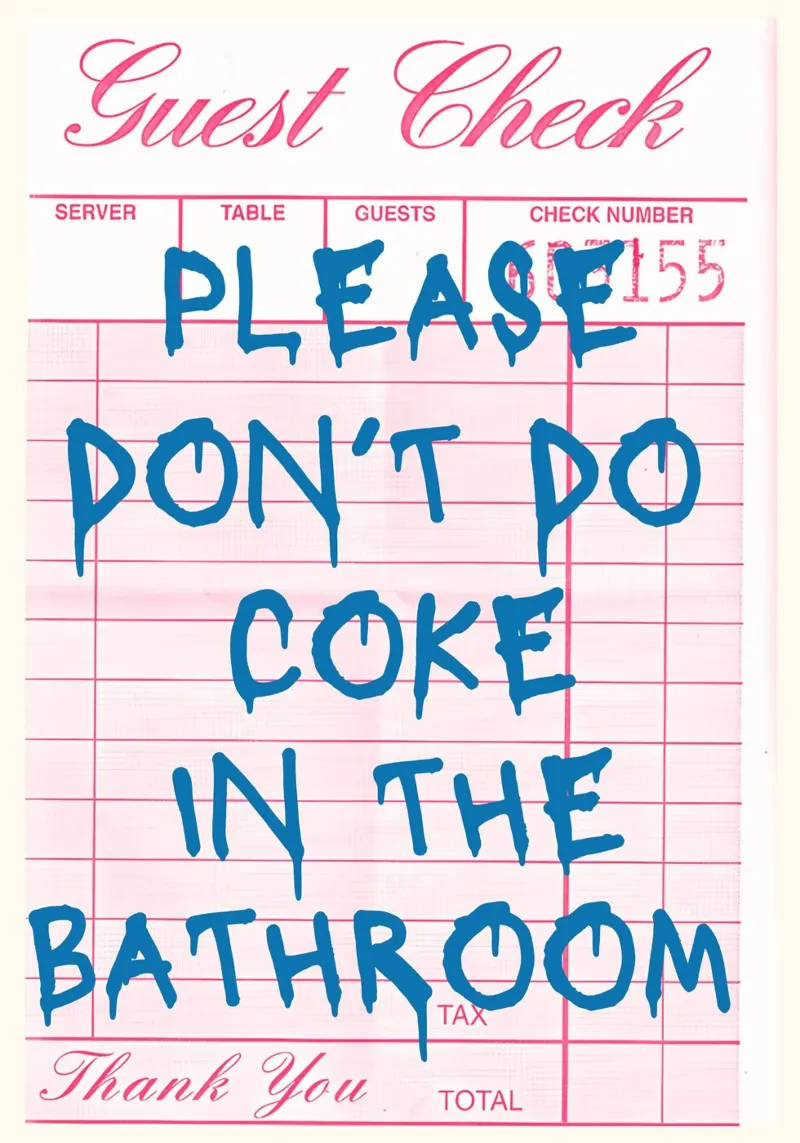 Guest Check
SERVER TABLE GUESTS CHECK NUMBER
PLEASE
DON'T DO
COKE
IN THE
BATHROOM
TAX
Thank You
TOTAL